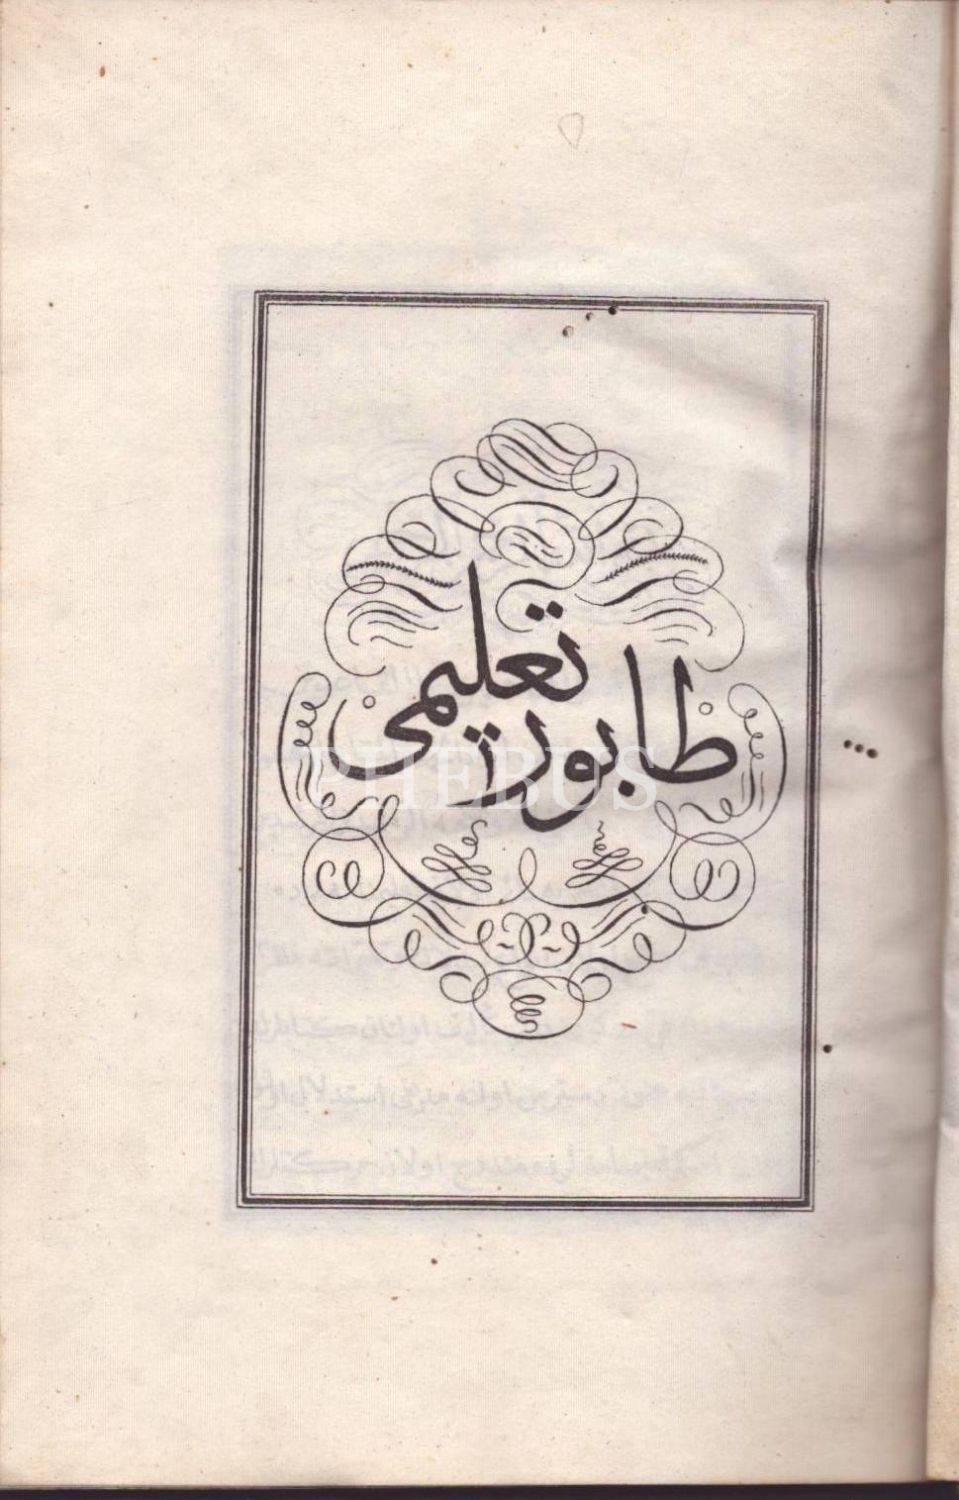 طابور تعليمى
PHEBUS